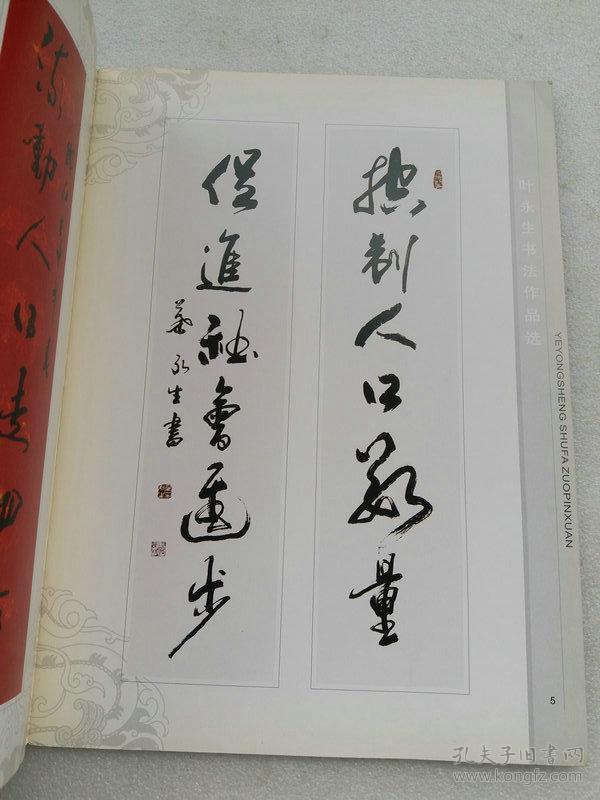 控制人口數量
促進社會進步
葉永生書
動人口
叶永生书法作品选
YEYONGSHENG SHUFA ZUOPINXUAN
5
孔夫子旧书网
www.kongfz.com